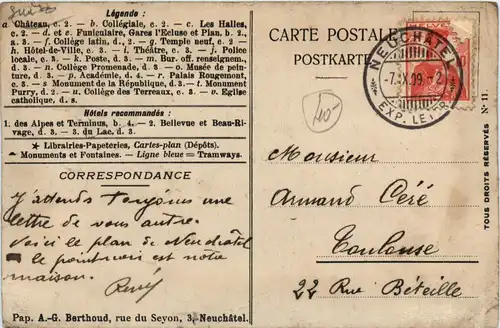 Légende :
a. Château, c. 2. — b. Collégiale, c. 2. — c. Les Halles,
c. 2. — d. et e. Funiculaire, Gares l'Ecluse et Plan, b. 2.,
a. 5. — f. Collège latin, d. 2., g. Temple neuf, c. 2 —
h. Hôtel-de-Ville, c. 3. — i. Théâtre, c. 3. — j. Police
locale, c. 3. — k. Poste, d. 3. — m. Bur. off. renseignem.,
d. 3. — n. Collège Promenade, d. 3. — o. Musée de pein-
ture, d. 3. — p. Académie, d. 4. — r. Palais Rougemont,
c. 3. — s Monument de la République, d. 3. — t. Monument
Purry, d. 2. — u. Collège des Terreaux, c. 3. — v. Eglise
catholique, d. 5.
Hôtels recommandés :
1. des Alpes et Terminus, b. 4. — 2. Bellevue et Beau-Ri-
vage, d. 3. — 3. du Lac, d. 3.
★ Librairies-Papeteries, Cartes-plan (Dépôts).
Monuments et Fontaines. — Ligne bleue = Tramways.
CORRESPONDANCE
J'attends toujours une
lettre de vous autre.
Voici le plan de Neuchâtel
le point noir est notre
maison.
René
Pap. A.-G. Berthoud, rue du Seyon, 3, Neuchâtel.
CARTE POSTALE
POSTKARTE
NEUCHÂTEL
-7.IX.09.-2
EXP. LETTR.
HELVETIA
40-
Monsieur
Armand Céré
Toulouse
22 Rue Béteille
TOUS DROITS RÉSERVÉS N° 11.